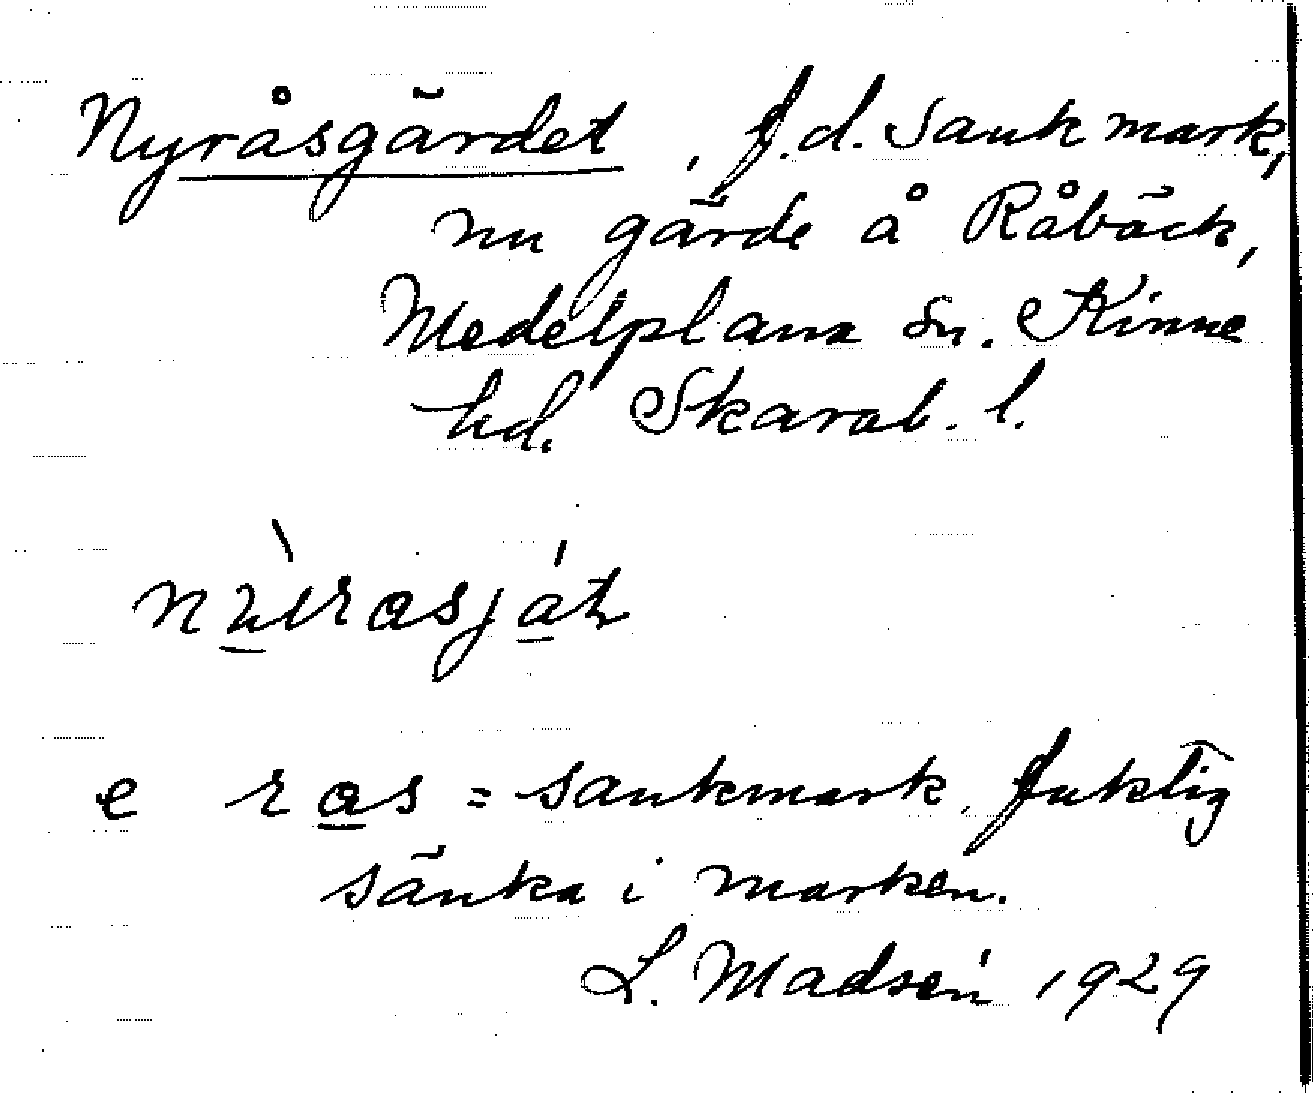 Nyråsgärdet, f.d. Sankmark,
nu gärde å Råbäck,
Medelplana sn. Kinne
hd. Skarab. l.
e ras = sankmark, fuktig
sänka i marken.
L. Madsén 1929